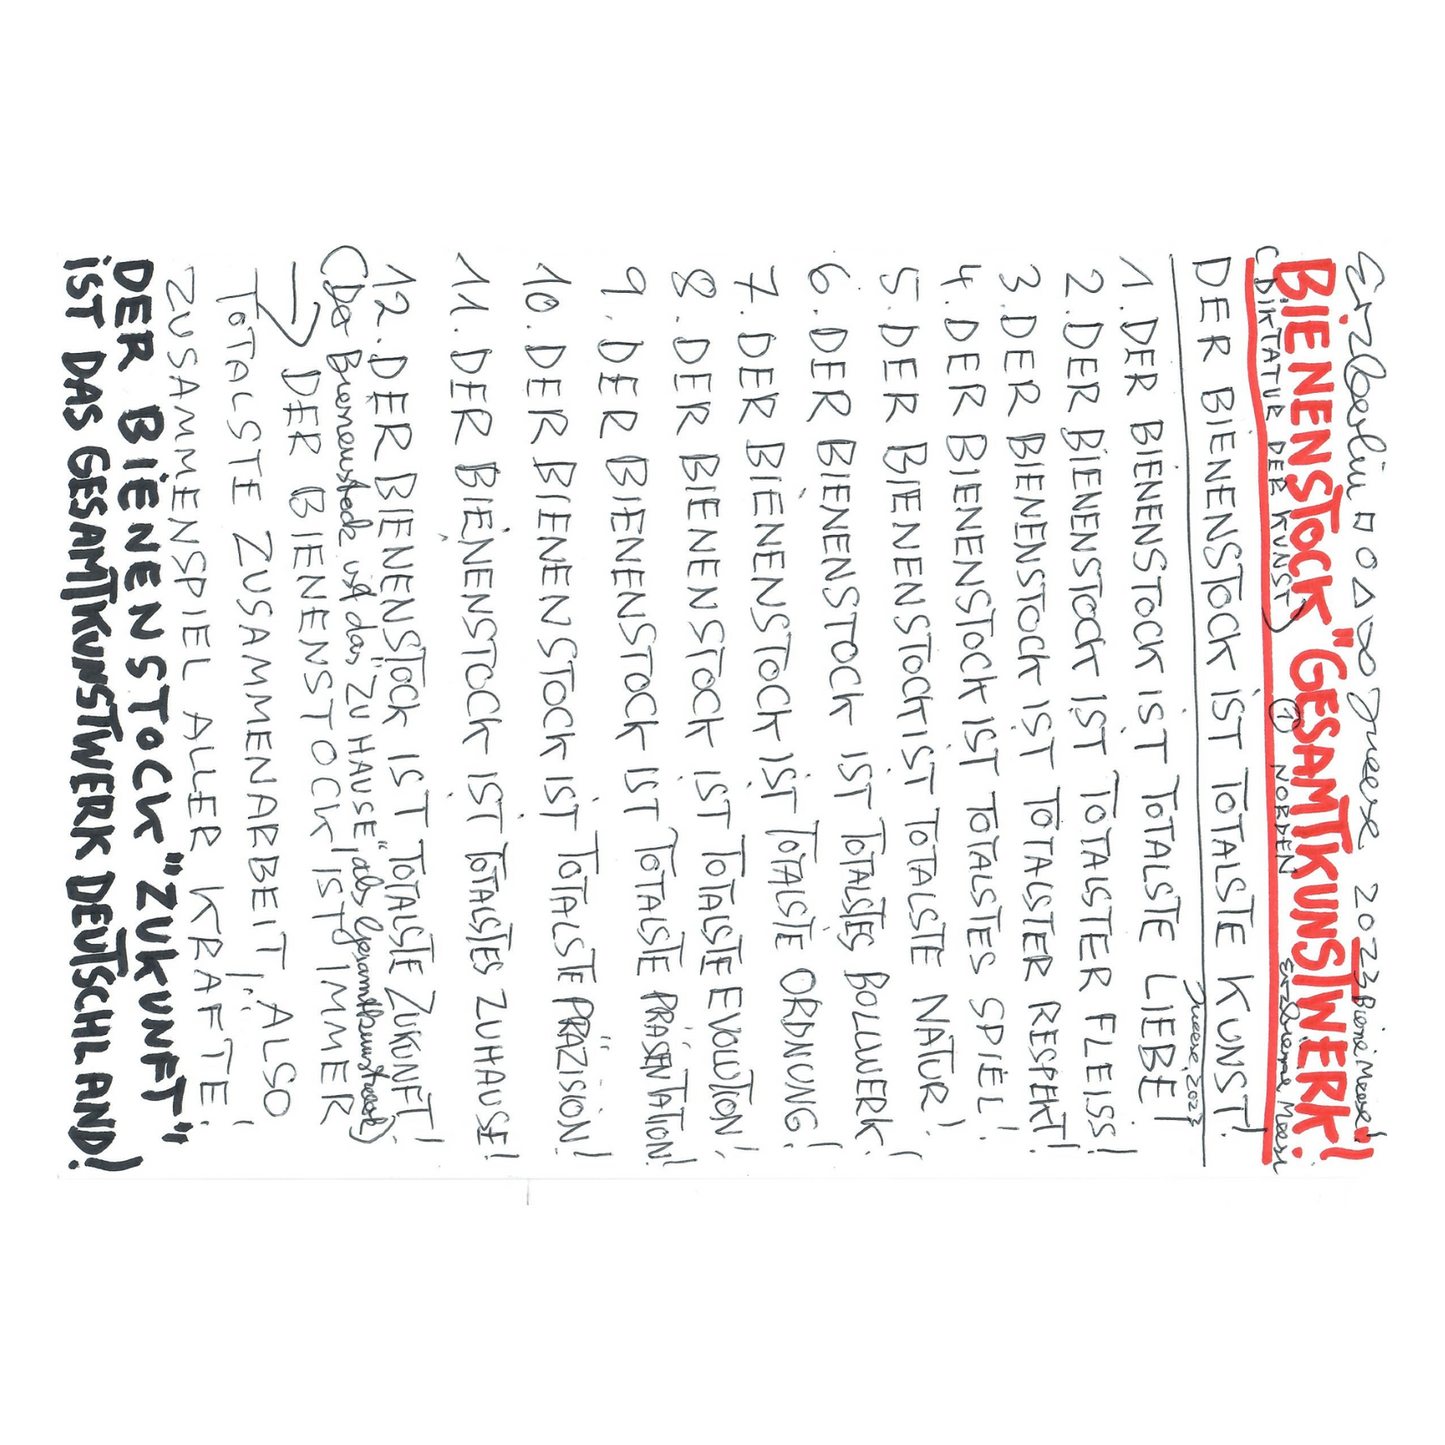 Erzberlin □○△∞ Jmeese 2023 Biene Meese!
BIENENSTOCK "GESAMTKUNSTWERK"!
(DIKTATUR DER KUNST) ① NORDEN Erzbiene Meese
DER BIENENSTOCK IST TOTALSTE KUNST!
Jmeese, 2023
1. DER BIENENSTOCK IST TOTALSTE LIEBE!
2. DER BIENENSTOCK IST TOTALSTER FLEISS!
3. DER BIENENSTOCK IST TOTALSTER RESPEKT!
4. DER BIENENSTOCK IST TOTALSTES SPIEL!
5. DER BIENENSTOCK IST TOTALSTE NATUR!
6. DER BIENENSTOCK IST TOTALSTES BOLLWERK!
7. DER BIENENSTOCK IST TOTALSTE ORDNUNG!
8. DER BIENENSTOCK IST TOTALSTE EVOLUTION!
9. DER BIENENSTOCK IST TOTALSTE PRÄSENTATION!
10. DER BIENENSTOCK IST TOTALSTE PRÄZISION!
11. DER BIENENSTOCK IST TOTALSTES ZUHAUSE!
12. DER BIENENSTOCK IST TOTALSTE ZUKUNFT!
(Der Bienenstock ist das "ZUHAUSE" als Gesamtkunstwerk)
→ DER BIENENSTOCK IST IMMER
TOTALSTE ZUSAMMENARBEIT, ALSO
ZUSAMMENSPIEL ALLER KRÄFTE!
DER BIENENSTOCK "ZUKUNFT"
IST DAS GESAMTKUNSTWERK DEUTSCHLAND!